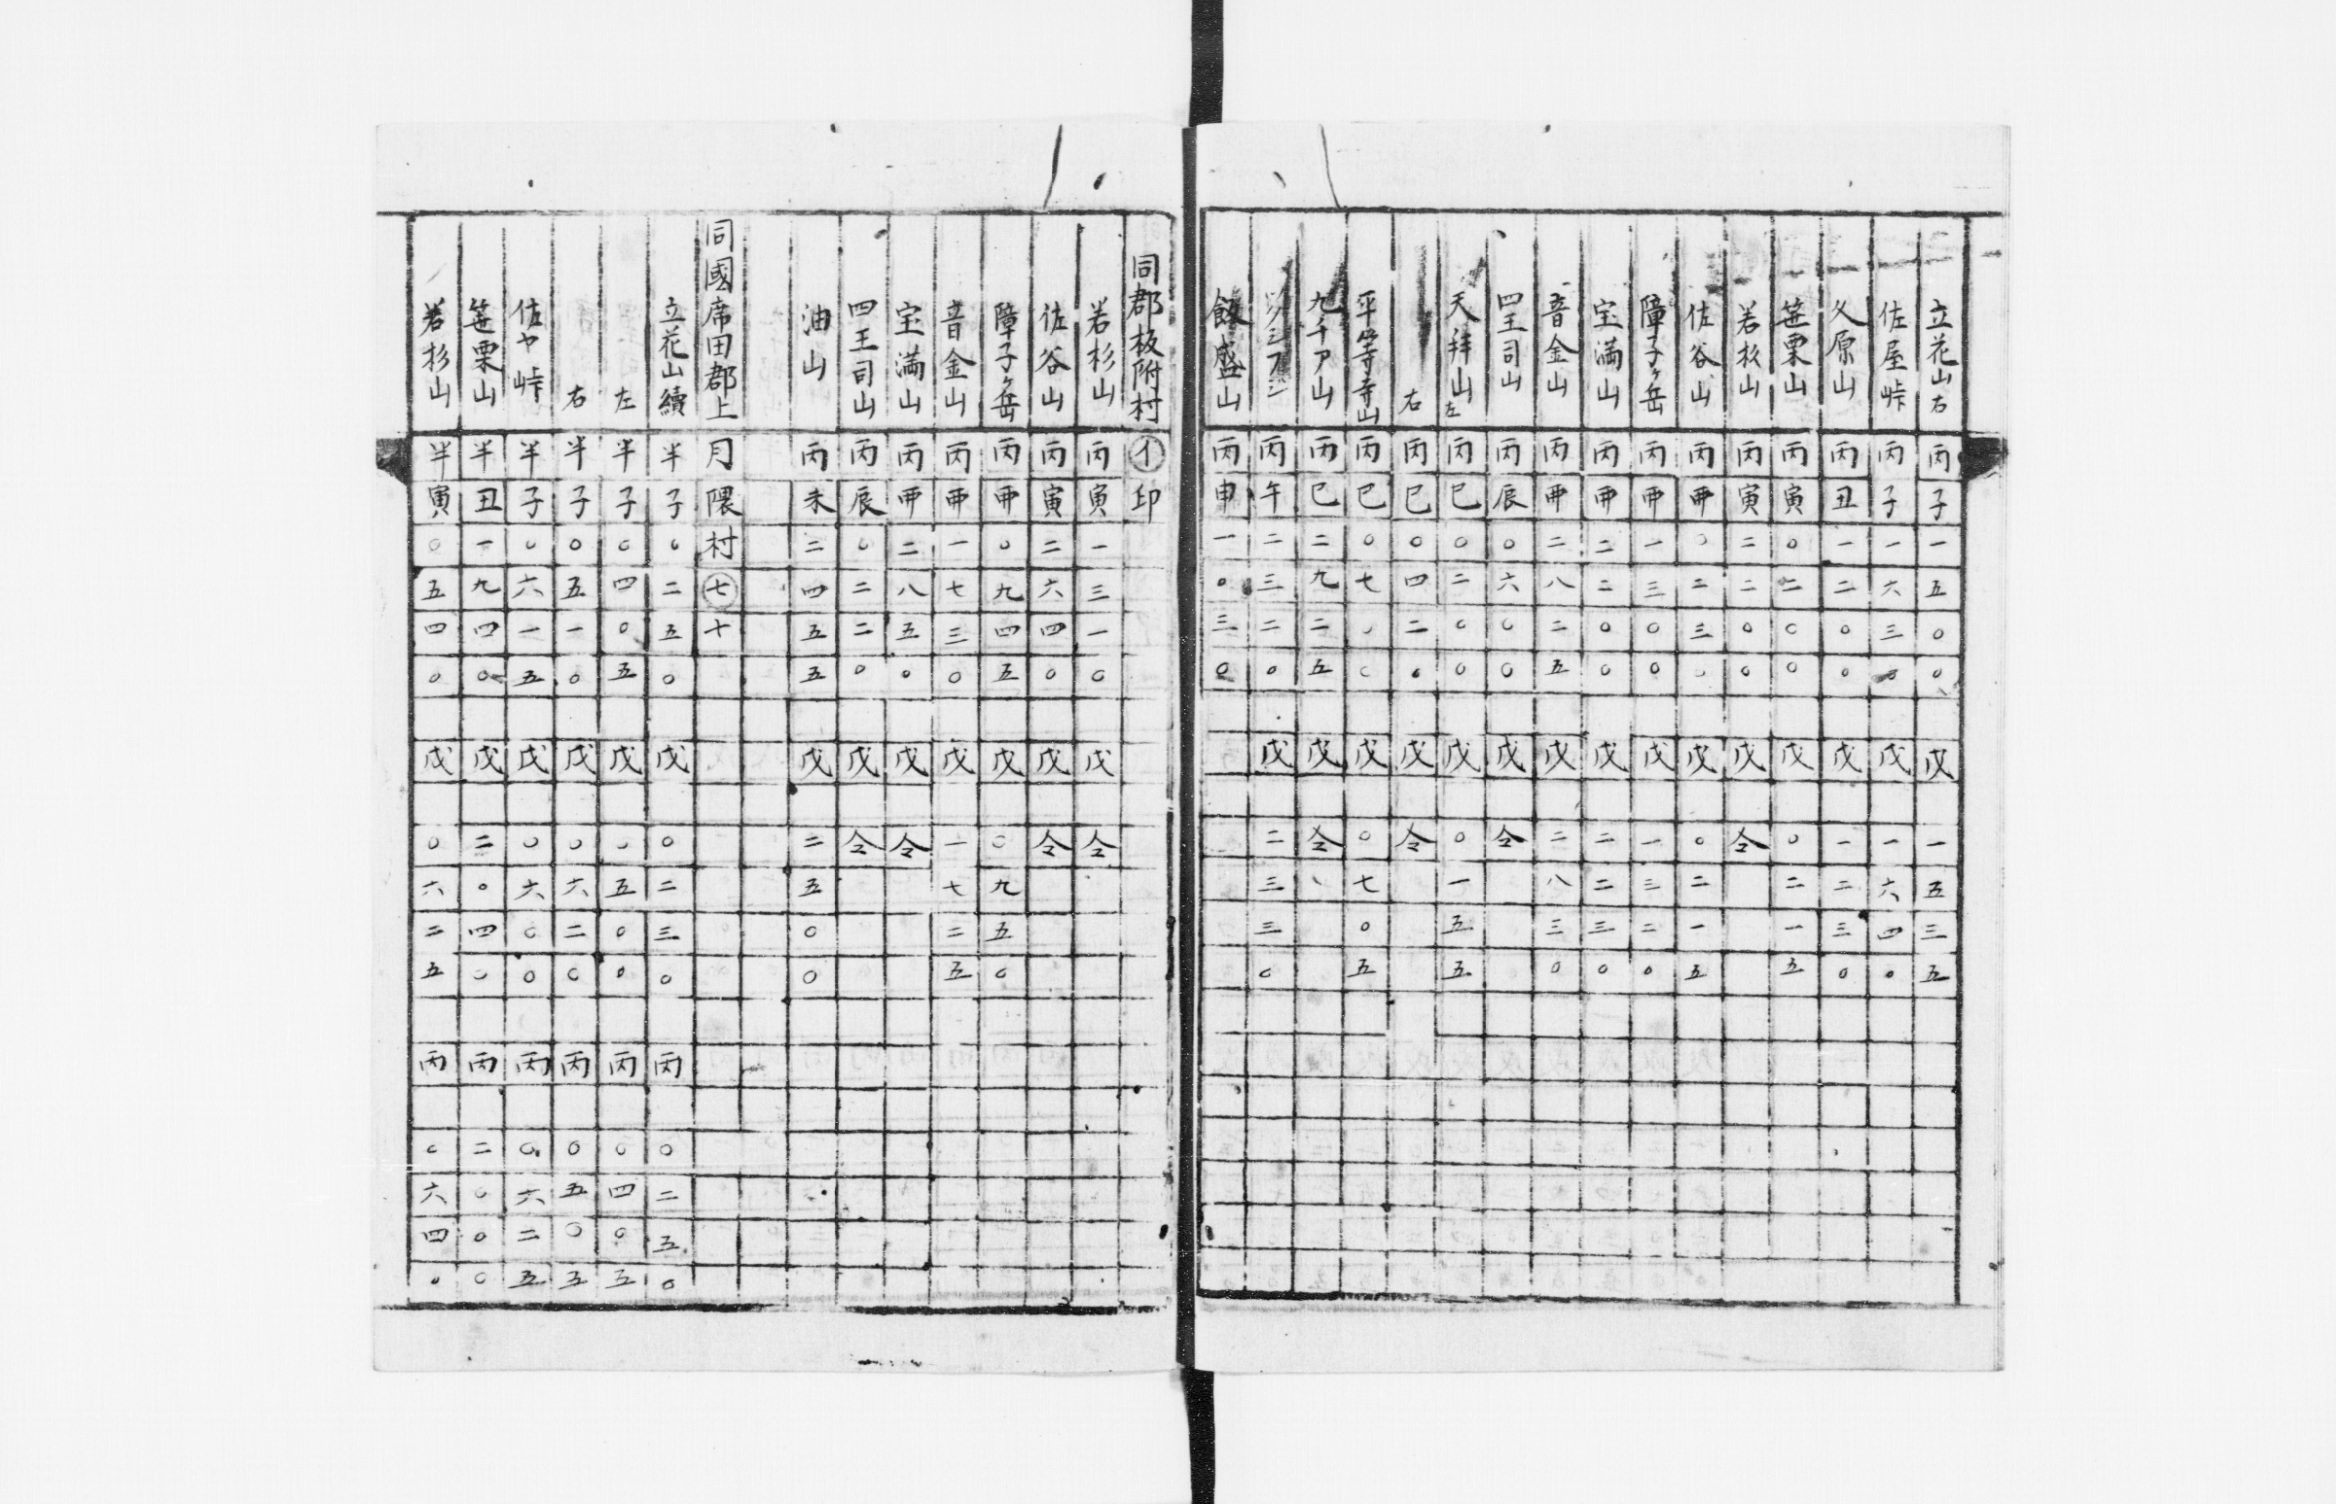 立花山右丙子一五〇〇戊一五三五
佐屋峠丙子一六三〇戊一六四〇
久原山丙丑一二〇〇戊一二三〇
笹栗山丙寅〇二〇〇戊〇二一五
若杉山丙寅二二〇〇戊令
佐谷山丙丣〇二三〇戊〇二一五
障子ヶ岳丙丣一三〇〇戊一三二〇
宝満山丙丣二二〇〇戊二二三〇
音金山丙丣二八二五戊二八三〇
四王司山丙辰〇六〇〇戊令
天拝山左丙巳〇二〇〇戊〇一五五
右丙巳〇四二〇戊令
平等寺山丙巳〇七〇〇戊〇七〇五
九千ア山丙巳二九二五戊令
丙午二三二〇戊二三三〇
飯盛山丙申一〇三〇
同郡板附村イ印
若杉山丙寅一三一〇戊令
佐谷山丙寅二六四〇戊令
障子ヶ岳丙丣〇九四五戊〇九五〇
音金山丙丣一七三〇戊一七二五
宝満山丙丣二八五〇戊令
四王司山丙辰〇二二〇戊令
油山丙未二四五五戊二五〇〇
同國席田郡上月隈村七十
立花山續半子〇二五〇戊〇二三〇丙〇二五〇
左半子〇四〇五戊〇五〇〇丙〇四〇五
右半子〇五一〇戊〇六二〇丙〇五〇五
佐ヤ峠半子〇六一五戊〇六〇〇丙〇六二五
笹栗山半丑一九四〇戊二〇四〇丙二〇〇〇
若杉山半寅〇五四〇戊〇六二五丙〇六四〇